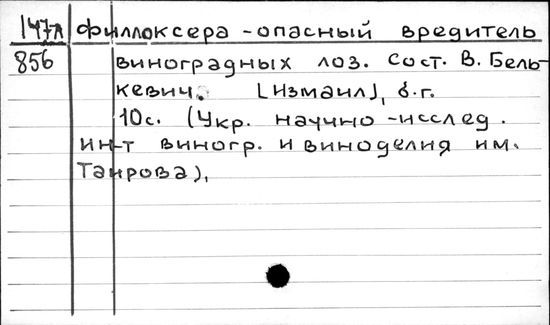 147А Филлоксера - опасный вредитель
856 виноградных лоз. Сост. В. Бель-
кевич. [Измаил], б.г.
10с. (Укр. научно-исслед.
ин-т виногр. и виноделия им.
Таирова).